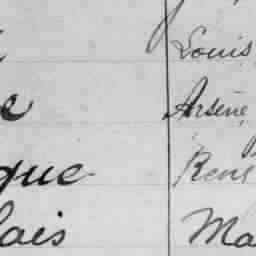 Louis
e Arsène
que René
lais Ma